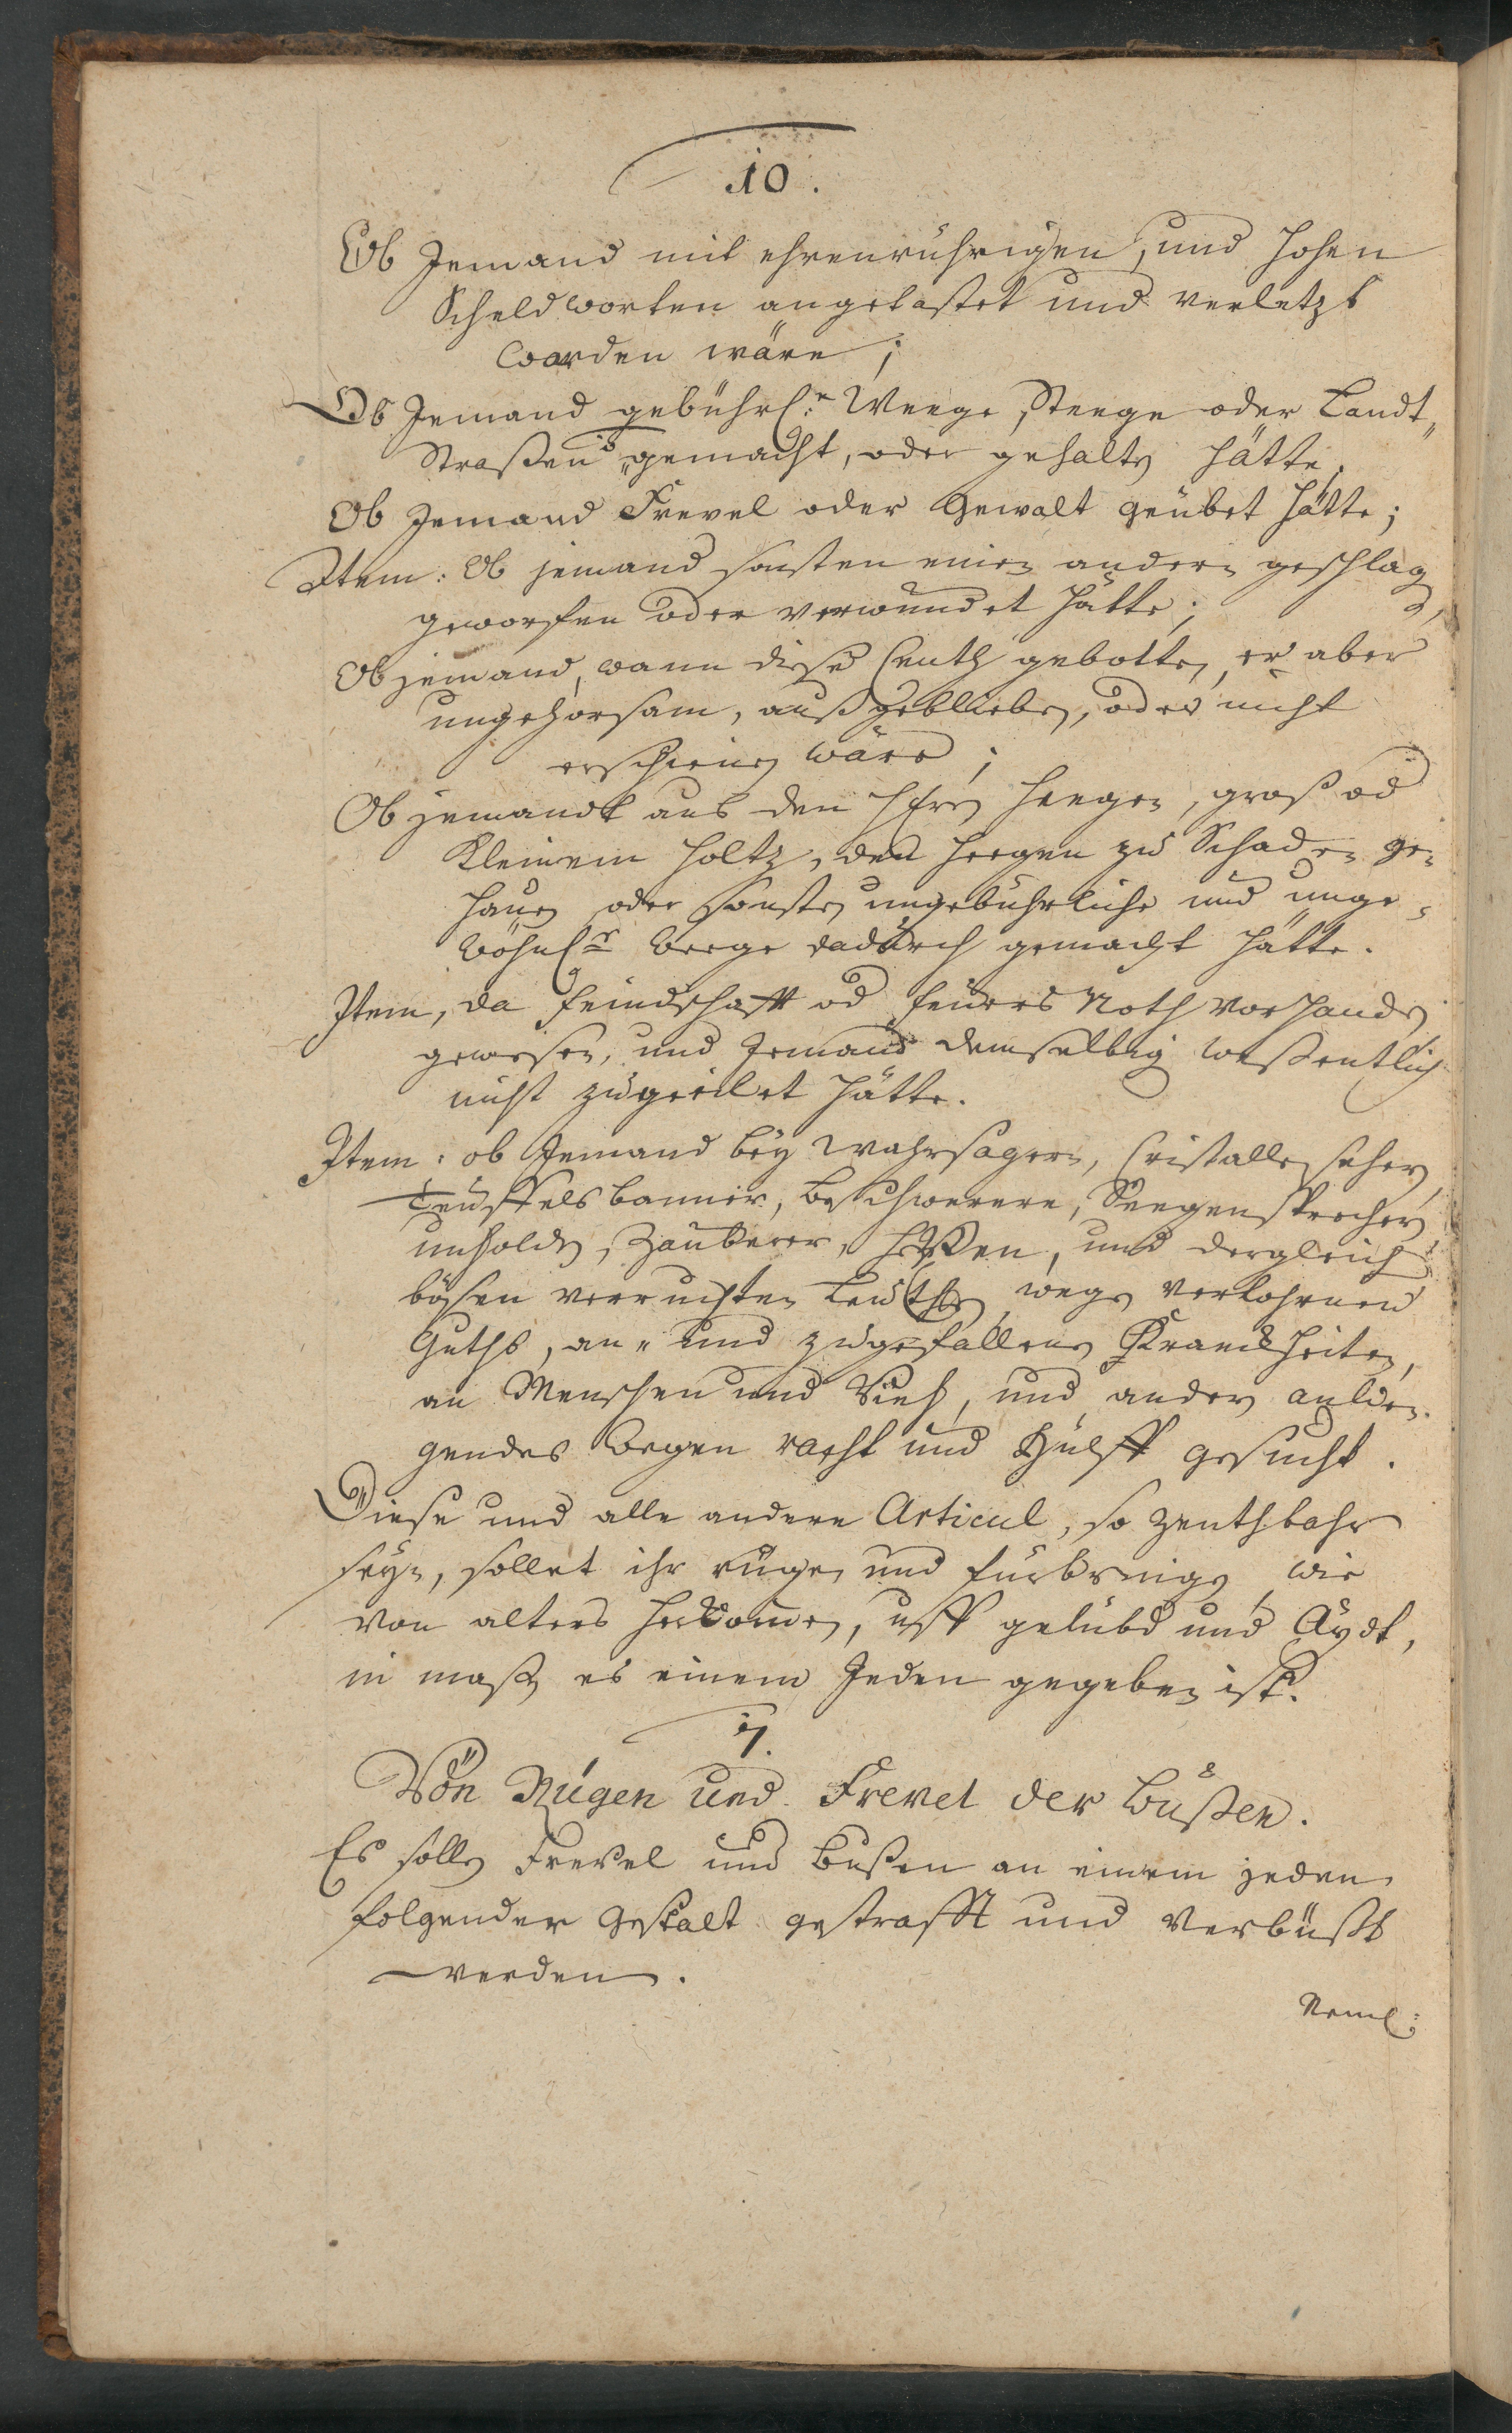 10.
Ob Jemand mit ehrenrührigen, und hohen
Scheldworten angetastet und verletzt
worden wäre;
Ob Jemand gebührl:r Weege, Steege oder Landt„
Straßen „gemacht, oder gehalten hätte.
Ob Jemand Frevel oder Gewalt geübet hätte;
Item: Ob jemand sonsten einen andern geschlag
geworffen oder verwundet hätte;
Ob jemand, wann diese Centh gebotten, er aber
ungehorsam, außgeblieben, oder nicht
erschienen wäre;
Ob jemandt aus den Heegen, groß od
Kleinem Holtz, den Heegen zu Schaden ge-
hauen oder sonsten ungebührliche und unge-
wöhnl:r Weege dadurch gemacht hätte.
Item, da Feindschafft od Feüers Noth vorhanden
gewesen, und Jemand demselbig weßentlich
nicht zugeeilet hätte.
Item: ob Jemand bey Wahrsagern, Cristallen seher,
Teuffelsbanner, Beschwerere, Seegensprecher,
unholden, Zauberer, Hexen, und dergleich
bößen verruchten Leuthen, wegen verlohrnen
Guths, an- und zugefallenen Kranckheiten,
an Menschen und Vieh, und ander anlie-
gendes wegen racht und Hülff gesucht.
Diese und alle andere Articul, so zenthbahr
seyn, sollet ihr rügen und fürbringen, wie
von alters herkommen, uff gelübd und Aydt,
in maßen es einem Jeden gegeben ist.
7.
Von Rügen und Frevel der Bußen.
Es sollen Frevel und Bußen an einem jeden
folgender Gestalt gestrafft und Verbüßt
werden.
Neml: